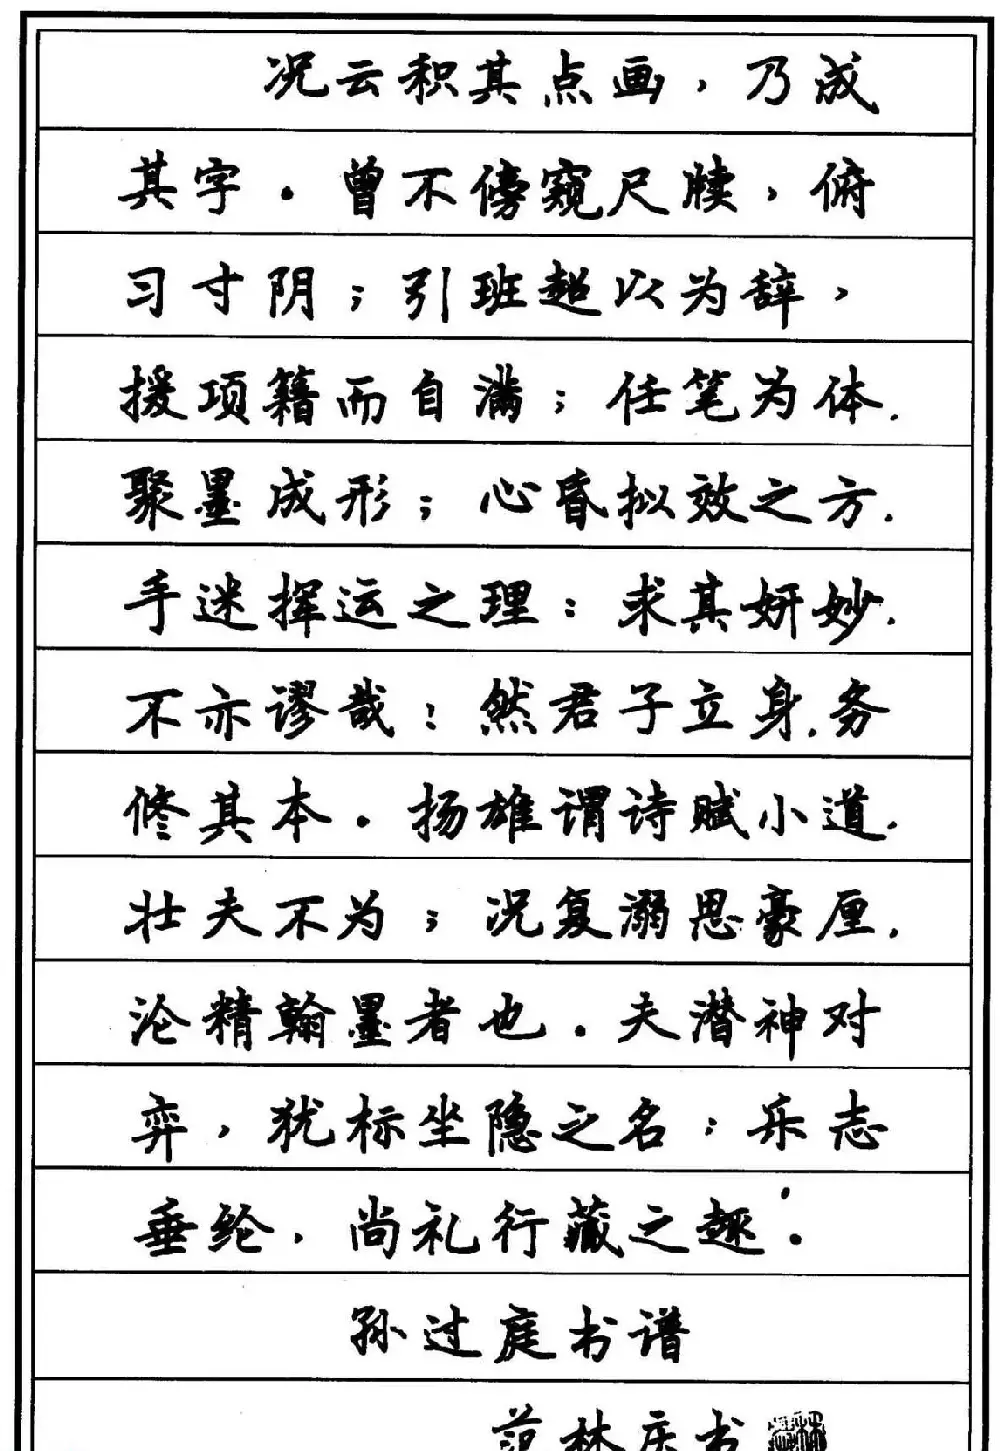 况云积其点画，乃成
其字。曾不傍窥尺牍，俯
习寸阴；引班超以为辞，
援项籍而自满；任笔为体，
聚墨成形；心昏拟效之方，
手迷挥运之理：求其妍妙，
不亦谬哉！然君子立身，务
修其本。扬雄谓诗赋小道，
壮夫不为；况复溺思豪厘，
沦精翰墨者也。夫潜神对
弈，犹标坐隐之名；乐志
垂纶，尚礼行藏之趣。
孙过庭书谱
范林庆书